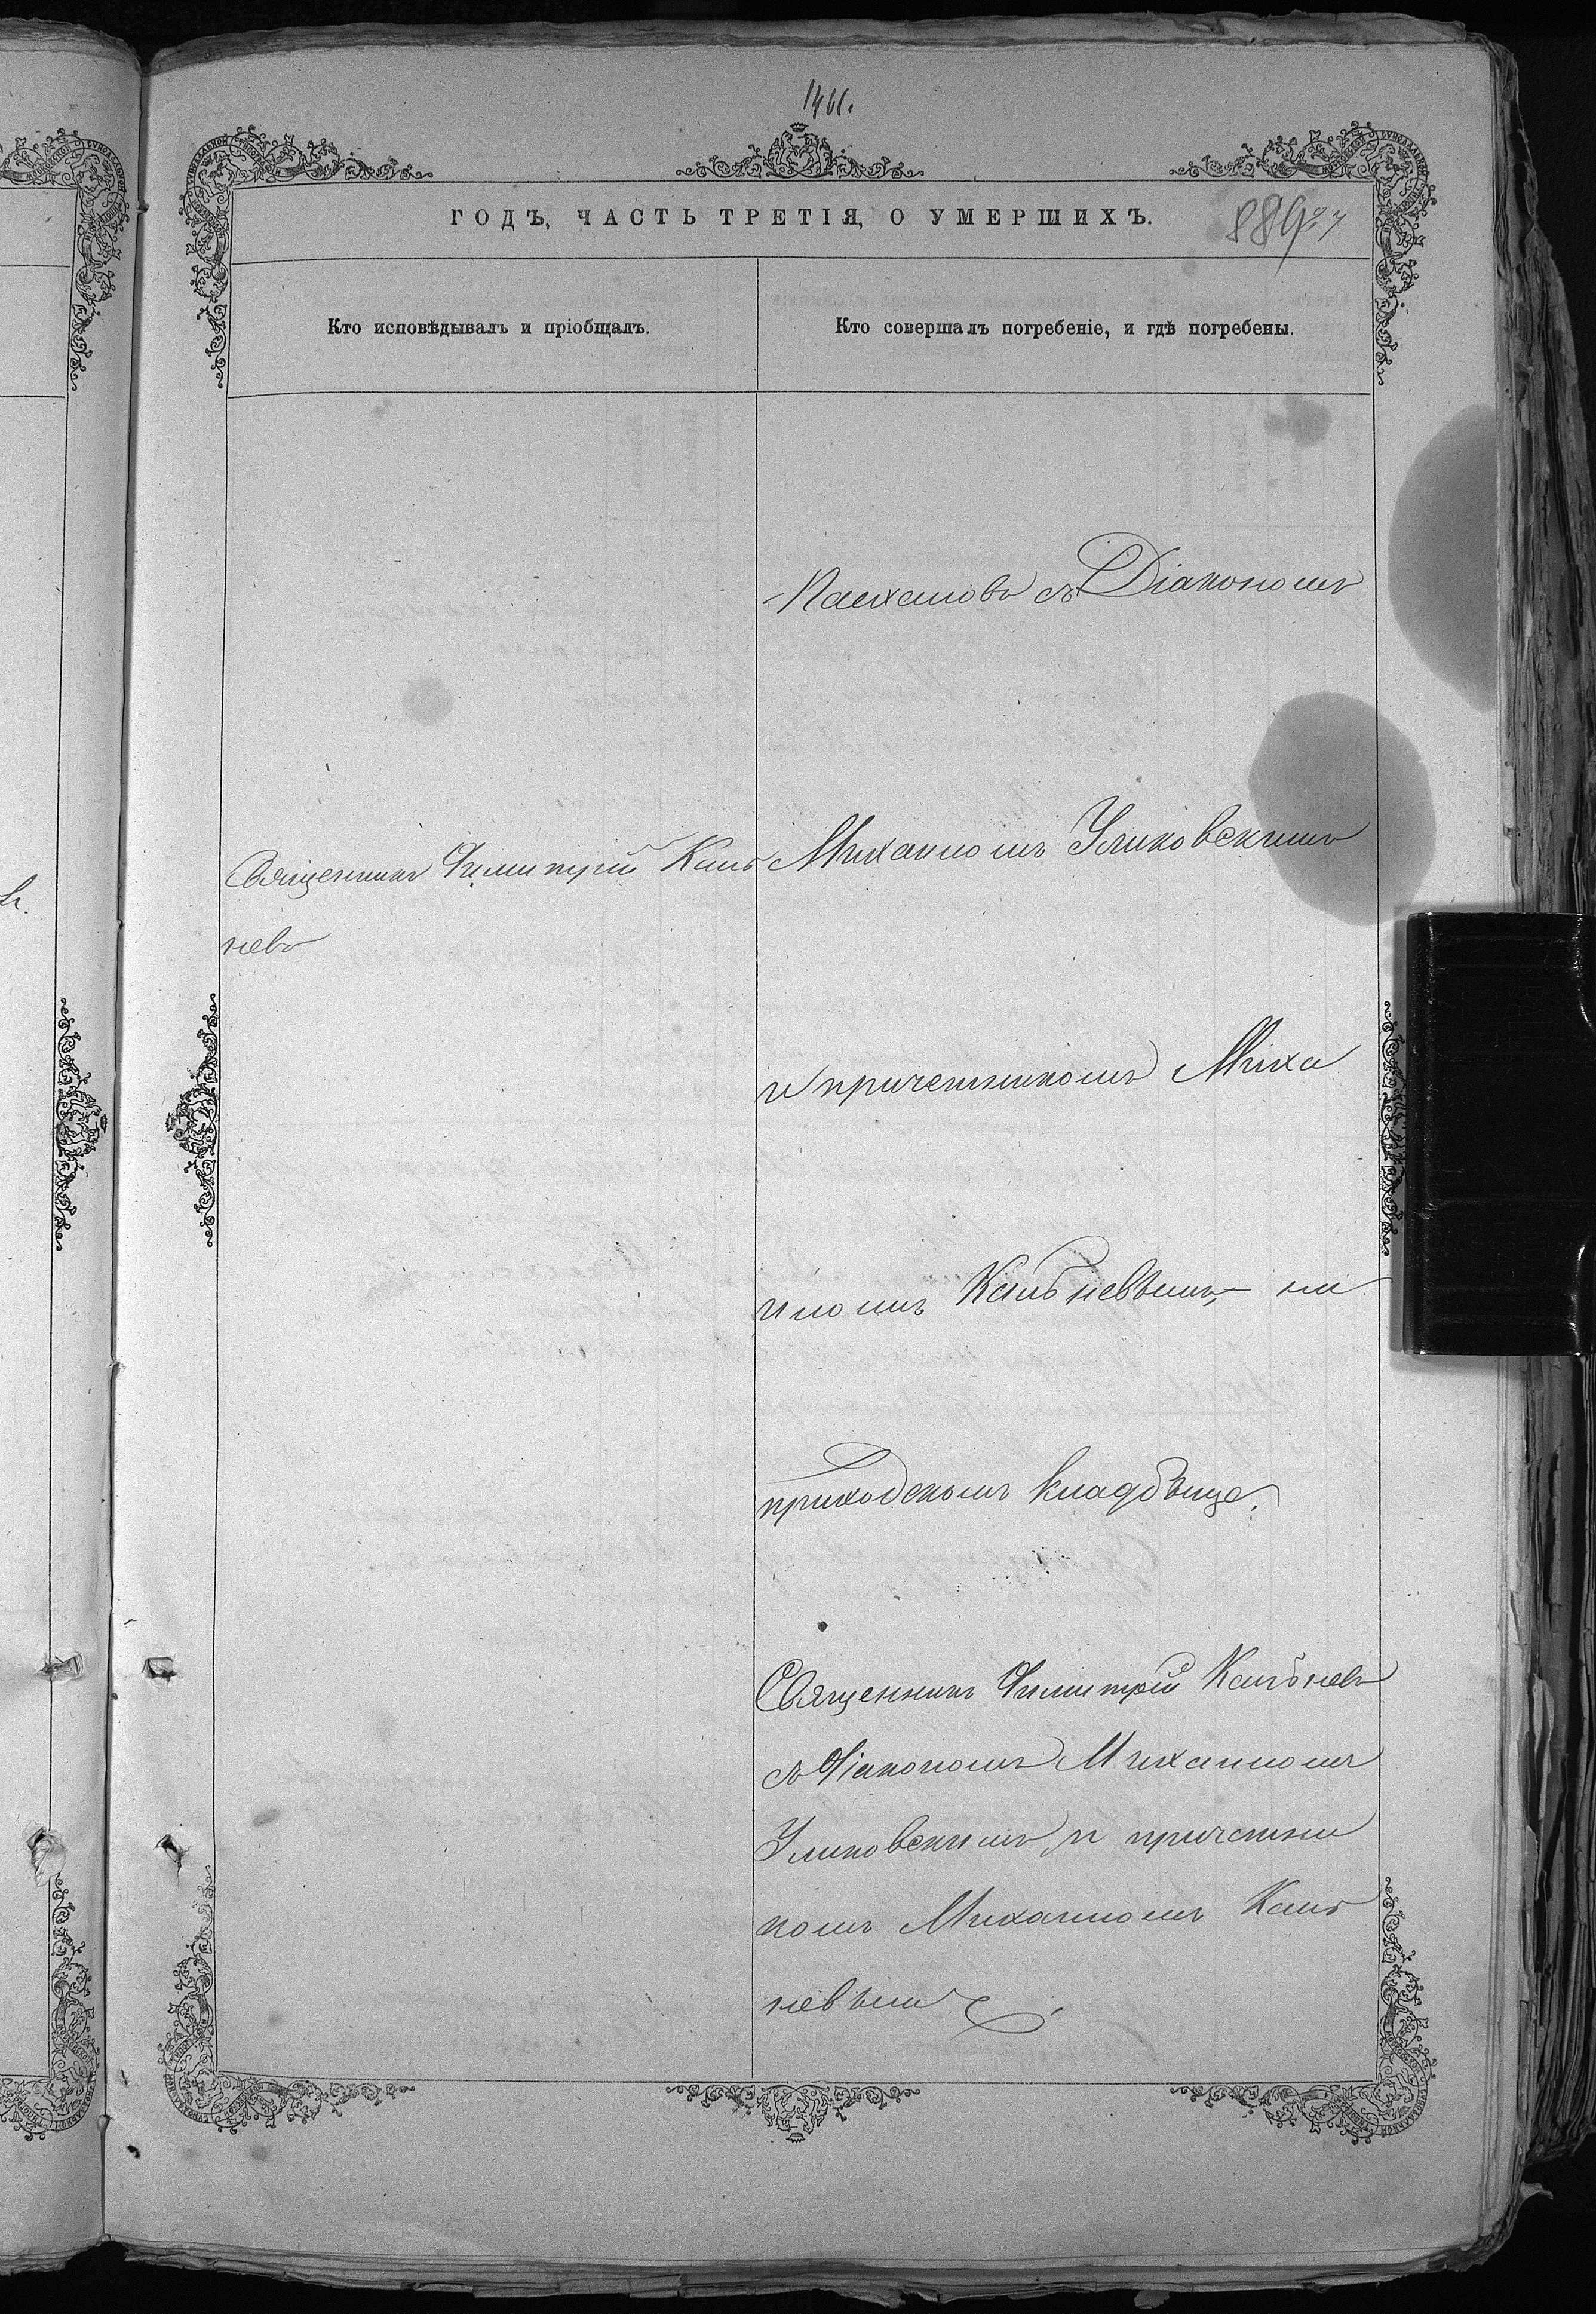 1461.
ГОДЪ, ЧАСТЬ ТРЕТІЯ, О УМЕРШИХЪ.
889
Кто исповѣдывалъ и пріобщалъ.
Кто совершалъ погребеніе, и гдѣ погребены.
Священникъ Димитрій Каль
невъ
съ Діакономъ
Михаиломъ Уликовскимъ
и причетникомъ Миха
иломъ Кальневымъ, на
приходскомъ кладбище.
Священникъ Димитрій Кальневъ
съ Діакономъ Михаиломъ
Уликовскимъ и причетни
комъ Михаиломъ Каль
невымъ